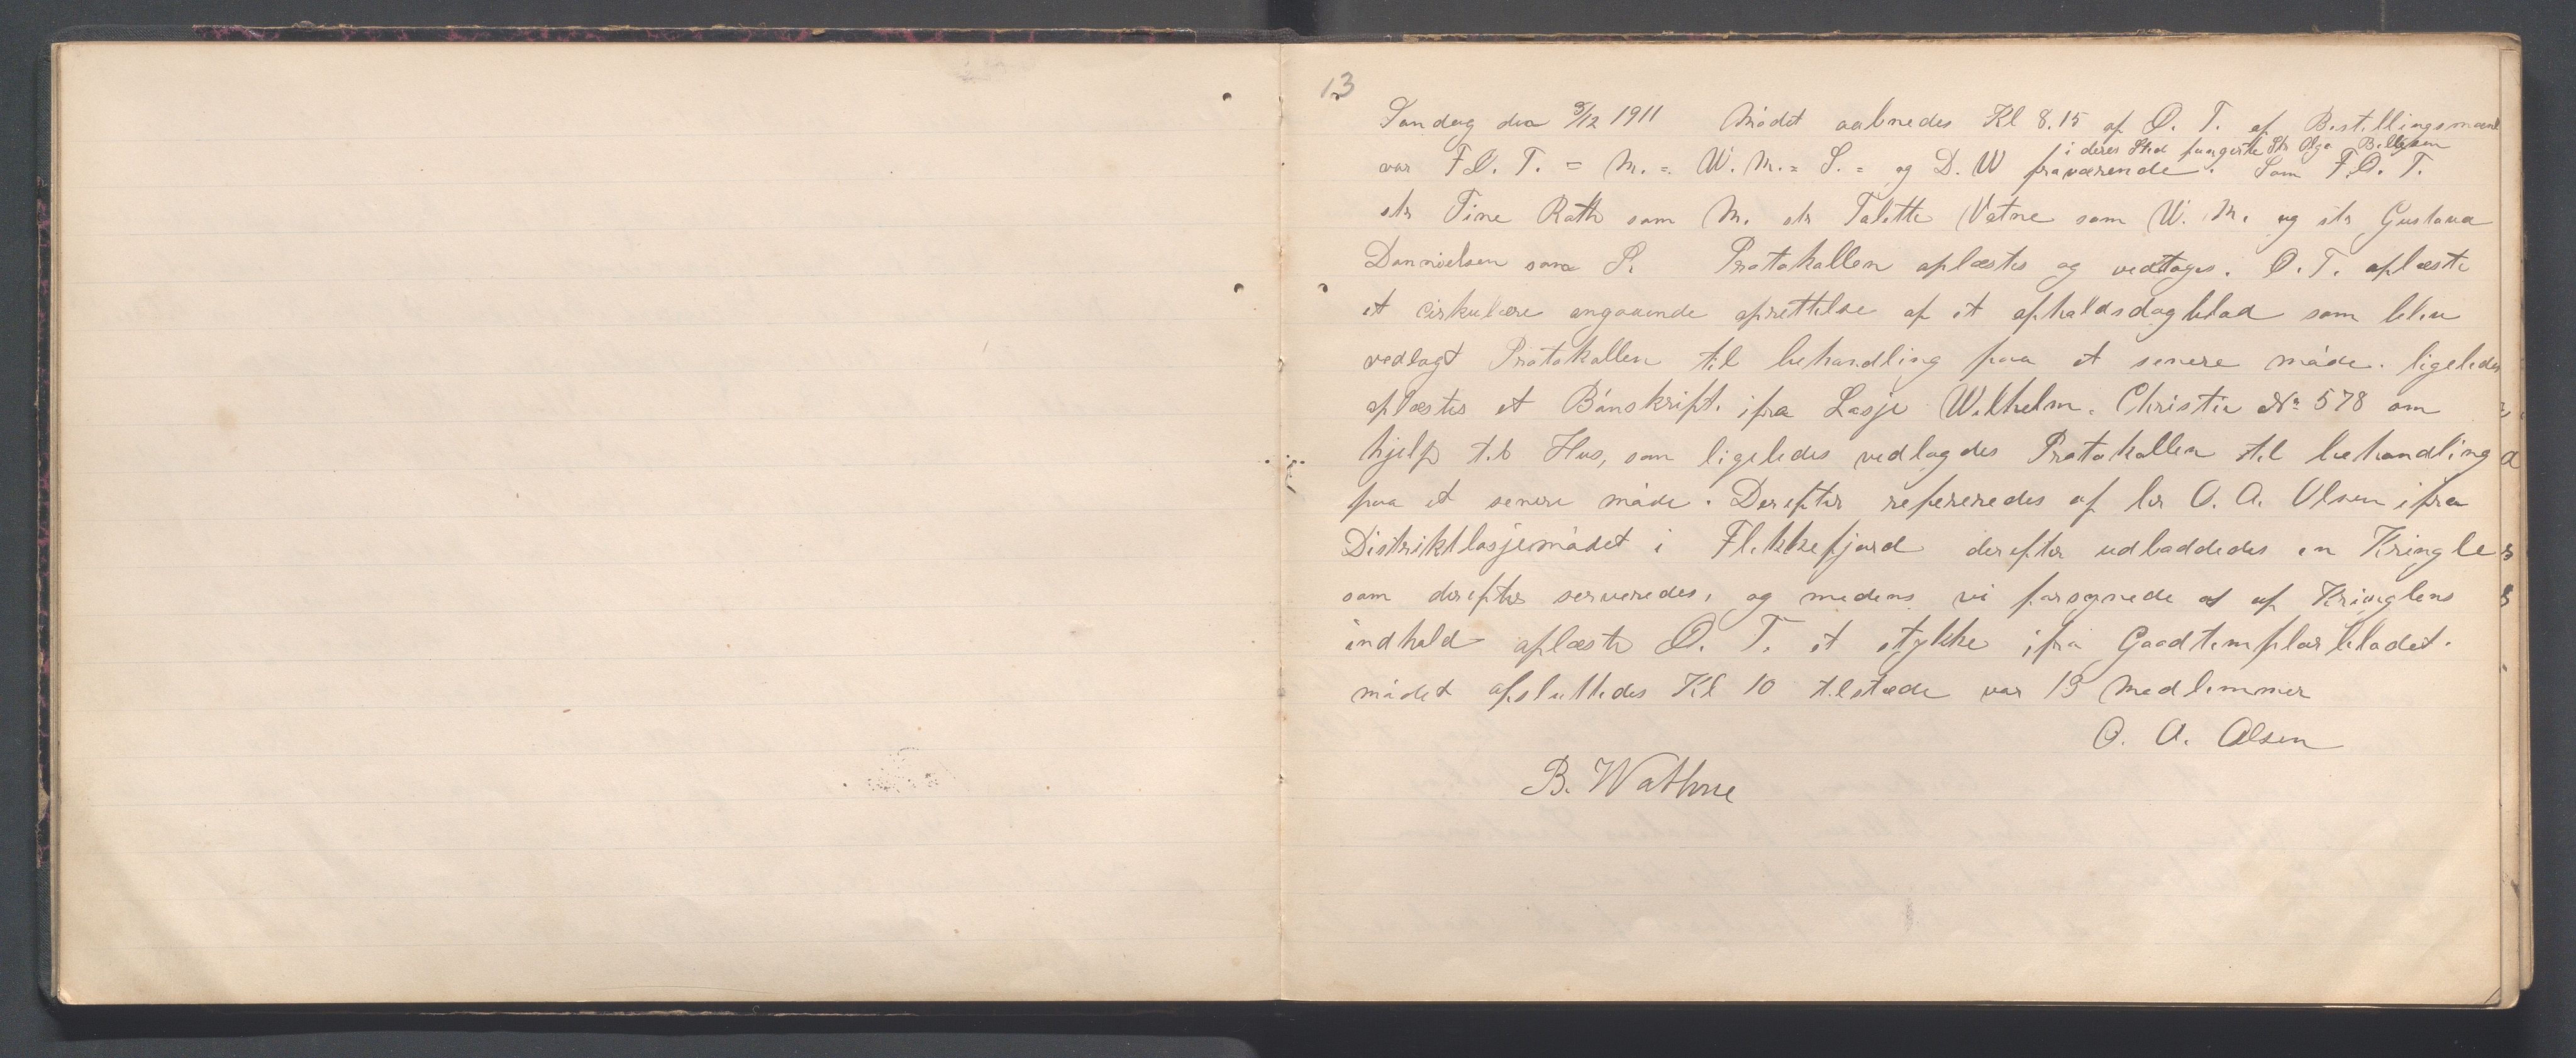 13
Søndag den 3/12 1911 Mødet aabnedes Kl 8.15 af Ø. T. af Bestillingsmænd
i deres Sted fungerte Str Olga
var F.Ø. T. = M. = W. M. = S. = og D. W fraværende. Som F.Ø. T.
str Tine Rath som M. str Talette Vatne som W. M. og str Gustava
Dannielsen som S. Protokollen oplæstes og vedtoges. Ø. T. oplæste
et cirkulære angaaende oprettelse af et afholdsdagblad som blev
vedlagt Protokollen til behandling paa et senere møde. ligeledes
oplæstes et Bønskrift. ifra Losje Wilhelm. Christie No 578 om
hjelp til Hus, som ligeledes vedlagdes Protokollen til behandling
paa et senere møde. Derefter refereredes af br O. A. Olsen ifra
Distriktlosjemødet i Flekkefjord derefter udloddedes en Kringle
som derefter serveredes, og medens vi forsynede os af Kringlens
indhold oplæste Ø. T. et stykke ifra Goodtemplarbladet.
mødet afsluttedes Kl 10 tilstede var 19 Medlemmer
O. A. Olsen
B. Wathne